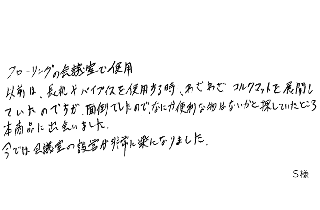 フローリングの会議室で使用
以前は、長机とパイプイスを使用する時、わざわざ コルクマットを展開し
ていたのですが、面倒でしたので、なにか便利な物はないかと探していたところ
本商品に出会いました。
今では会議室の設営が非常に楽になりました。
S様